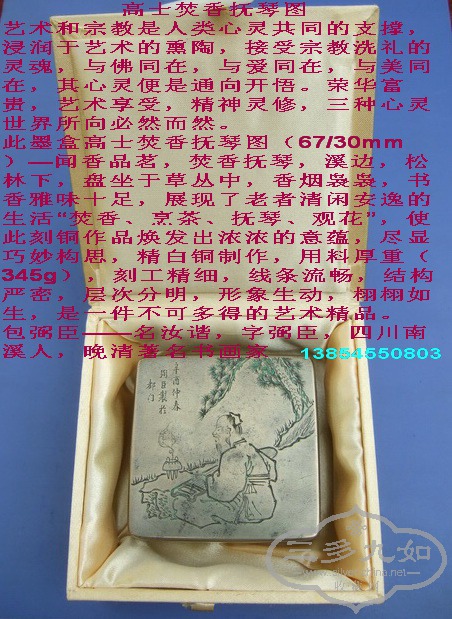 高士焚香抚琴图
艺术和宗教是人类心灵共同的支撑，
浸润于艺术的熏陶，接受宗教洗礼的
灵魂，与佛同在，与爱同在，与美同
在，其心灵便是通向开悟。荣华富
贵，艺术享受，精神灵修，三种心灵
世界所向必然而然。
此墨盒高士焚香抚琴图（67/30mm
）—闻香品茗，焚香抚琴，溪边，松
林下，盘坐于草丛中，香烟袅袅，书
香雅味十足，展现了老者清闲安逸的
生活“焚香、烹茶、抚琴、观花”，使
此刻铜作品焕发出浓浓的意蕴，尽显
巧妙构思，精白铜制作，用料厚重（
345g），刻工精细，线条流畅，结构
严密，层次分明，形象生动，栩栩如
生，是一件不可多得的艺术精品。
包弼臣——名汝谐，字弼臣，四川南
溪人，晚清著名书画家 13854550803
辛酉仲春
弼臣製於
都门
云多九如